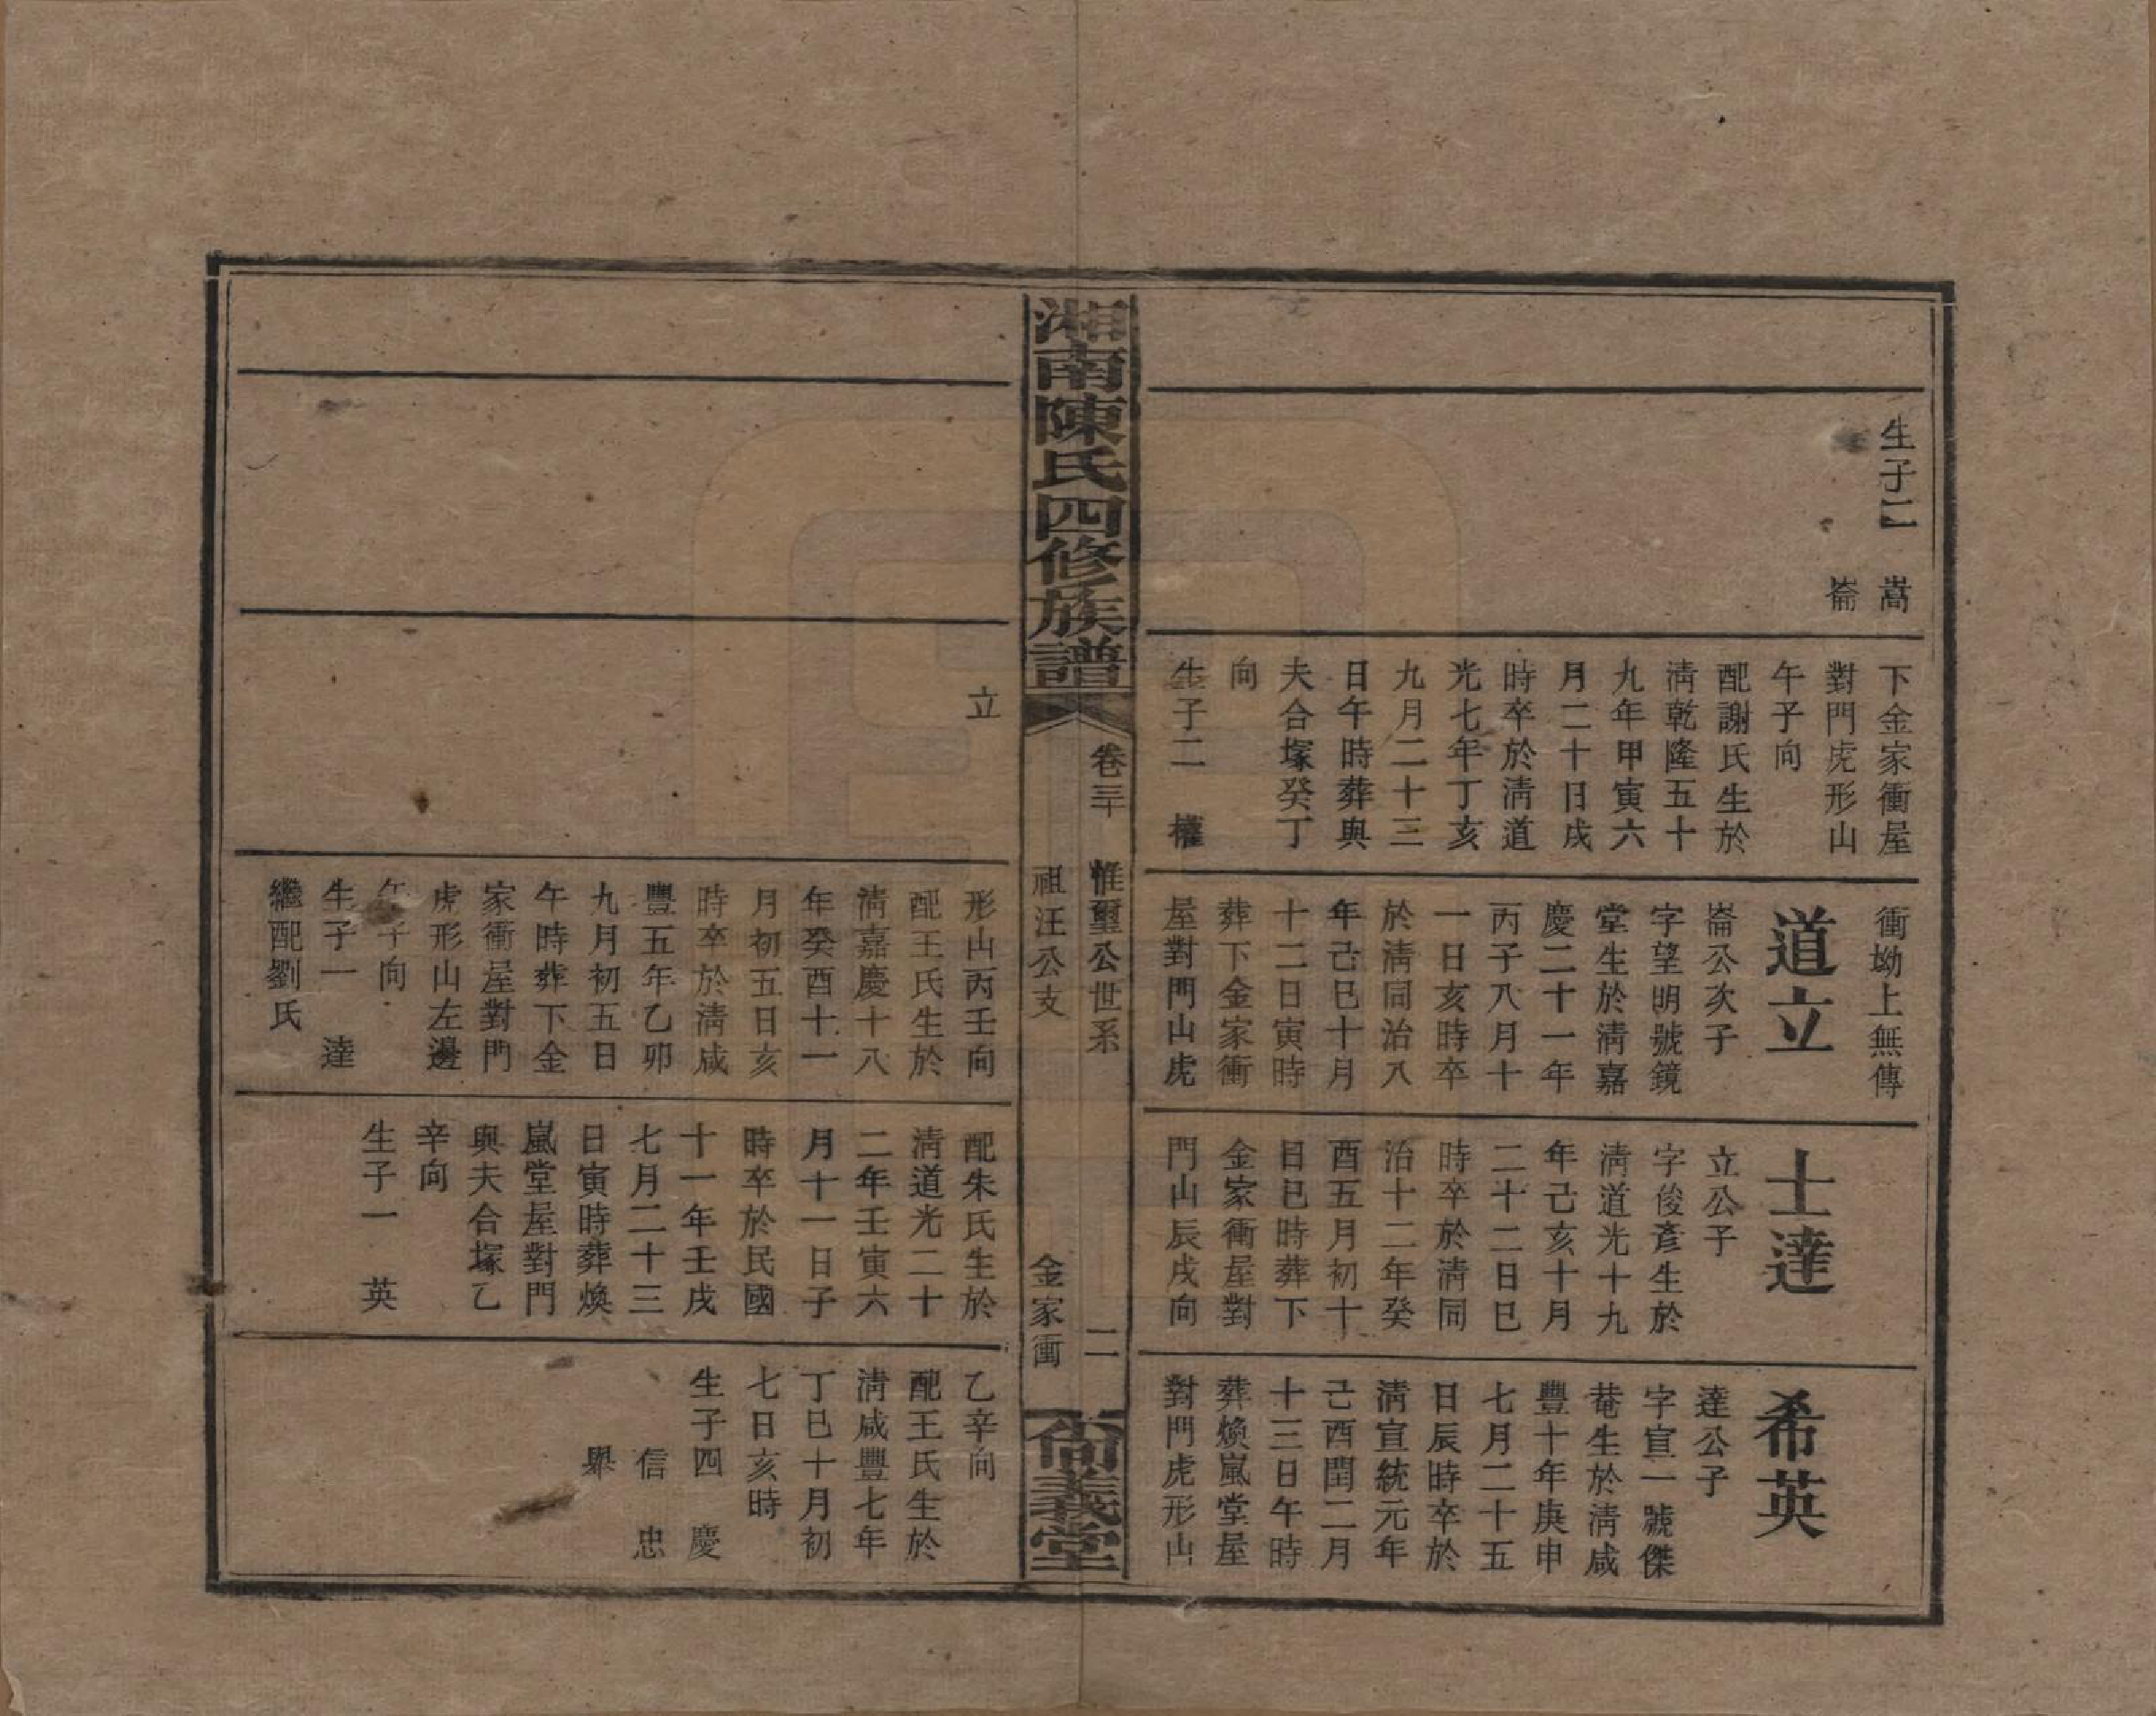 生子二　嵩
崙
下金家衝屋
對門虎形山
午子向
配謝氏生於
淸乾隆五十
九年甲寅六
月二十日戌
時卒於淸道
光七年丁亥
九月二十三
日午時葬與
夫合塚癸丁
向
生子二　權
衝坳上無傳
道立
崙公次子
字望明號鏡
堂生於淸嘉
慶二十一年
丙子八月十
一日亥時卒
於淸同治八
年己巳十月
十二日寅時
葬下金家衝
屋對門山虎
士達
立公子
字俊彥生於
淸道光十九
年己亥十月
二十二日巳
時卒於淸同
治十二年癸
酉五月初十
日巳時葬下
金家衝屋對
門山辰戌向
希英
達公子
字宣一號傑
菴生於淸咸
豐十年庚申
七月二十五
日辰時卒於
淸宣統元年
己酉閏二月
十三日午時
葬煥嵐堂屋
對門虎形山
湘南陳氏四修族譜
卷三十　惟璽公世系　二
祖汪公支　金家衝
尙義堂
立
形山丙壬向
配王氏生於
淸嘉慶十八
年癸酉十一
月初五日亥
時卒於淸咸
豐五年乙卯
九月初五日
午時葬下金
家衝屋對門
虎形山左邊
午子向
生子一　達
繼配劉氏
配朱氏生於
淸道光二十
二年壬寅六
月十一日子
時卒於民國
十一年壬戌
七月二十三
日寅時葬煥
嵐堂屋對門
與夫合塚乙
辛向
生子一　英
乙辛向
配王氏生於
淸咸豐七年
丁巳十月初
七日亥時
生子四　慶
信　忠
舉